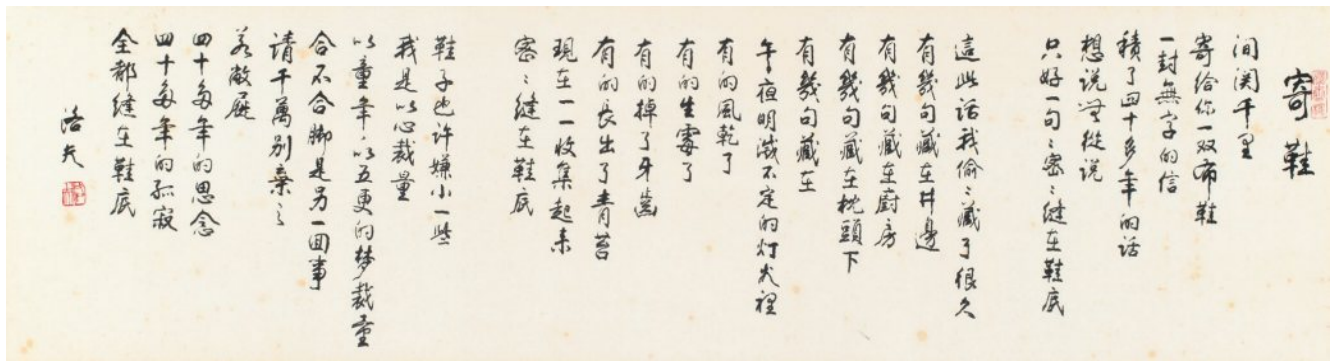 寄鞋
间関千里
寄给你一双布鞋
一封無字的信
積了四十多年的话
想说無從说
只好一句〻密〻縫在鞋底
這些话我偷〻藏了很久
有幾句藏在井邊
有幾句藏在廚房
有幾句藏在枕頭下
有幾句藏在
午夜明滅不定的灯火裡
有的風乾了
有的生霉了
有的掉了牙齒
有的長出了青苔
現在一一收集起来
密〻縫在鞋底
鞋子也许嫌小一些
我是以心裁量
以童年、以五更的梦裁量
合不合脚是另一回事
请千萬别棄之
若敝屣
四十多年的思念
四十多年的孤寂
全都縫在鞋底
洛夫